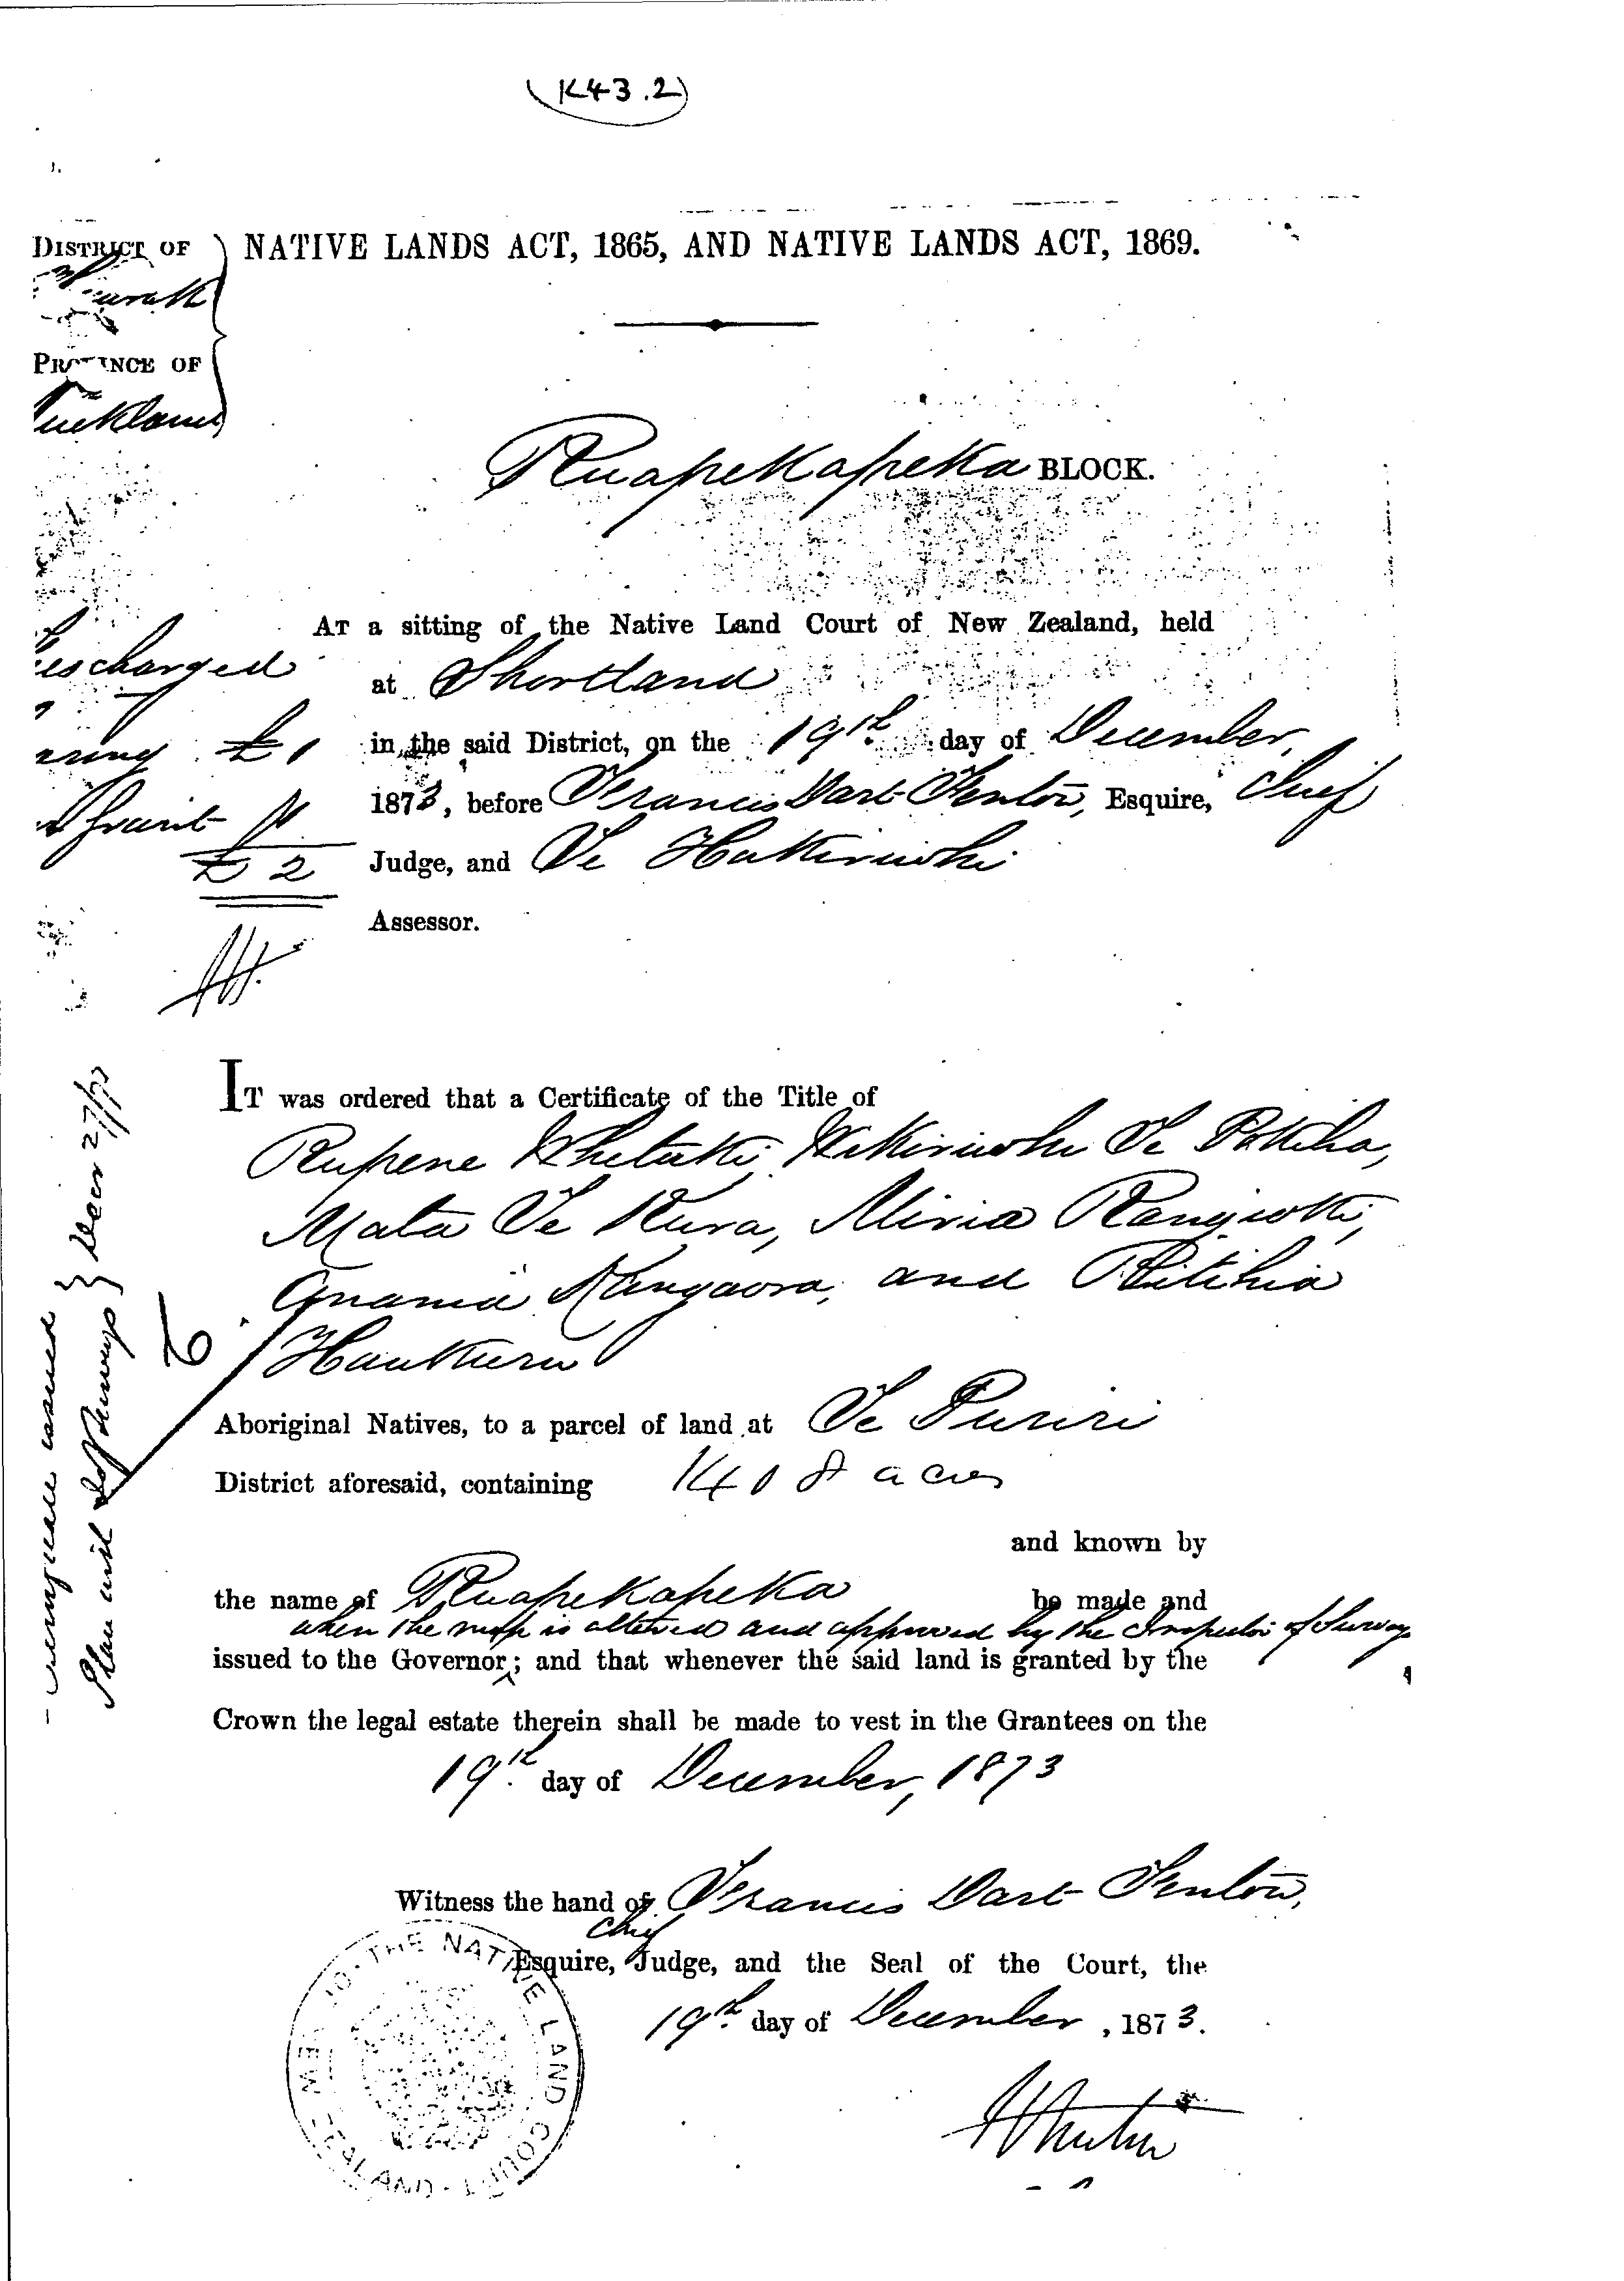 (K43.2)
DISTRICT OF
PROVINCE OF
Auckland
NATIVE LANDS ACT, 1865, AND NATIVE LANDS ACT, 1869.
Ruapekapeka BLOCK.
AT a sitting of the Native Land Court of New Zealand, held
at Shortland
in the said District, on the 19th day of December,
1873, before Francis Dart Fenton, Esquire, Chief
Judge, and Te
Assessor.
£1
£2
IT was ordered that a Certificate of the Title of
Rupene Whetuki, Te
Mata Te Kura, Miria Rangiwhi,
Anania and Ritihia
Aboriginal Natives, to a parcel of land at Te Puriri
District aforesaid, containing 1408 acres
and known by
the name of Ruapekapeka be made and
when the map is altered and approved by the Inspector of Surveys
issued to the Governor; and that whenever the said land is granted by the
Crown the legal estate therein shall be made to vest in the Grantees on the
19th day of December, 1873
Witness the hand of Francis Dart Fenton,
Chief
Esquire, Judge, and the Seal of the Court, the
19th day of December, 1873.
THE NATIVE LAND COURT